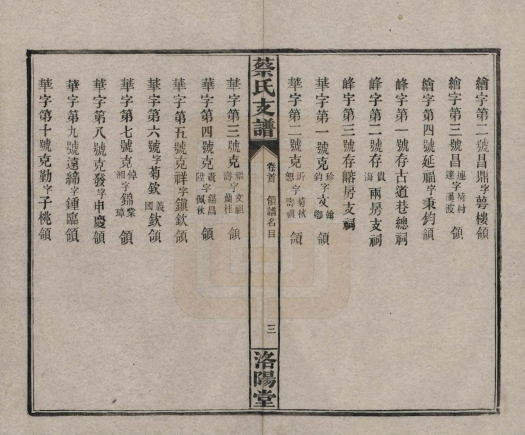 繪字第二號昌鼎字萼樓領
繪字第三號昌
繪字第四號延福字秉鈞領
峰字第一號存古道巷總祠
峰字第二號存 貴 海 兩房支祠
峰字第三號存 房支祠
華字第一號克 珍 鈞 字 文 領
華字第二號克 沂 恕 字 菊秋 壽嶺 領
蔡氏支譜
卷首
領譜名目
三
洛陽堂
華字第三號克 字 文福 蘭桂 領
華字第四號克 字 錫昌 佩秋 領
華字第五號克祥字鎮欽領
華字第六號字菊欽 義 國 欽領
華字第七號克 字錦 棠 璋 領
華字第八號克發字申慶領
華字第九號遠締字鍾臨領
華字第十號克勤字子桃領